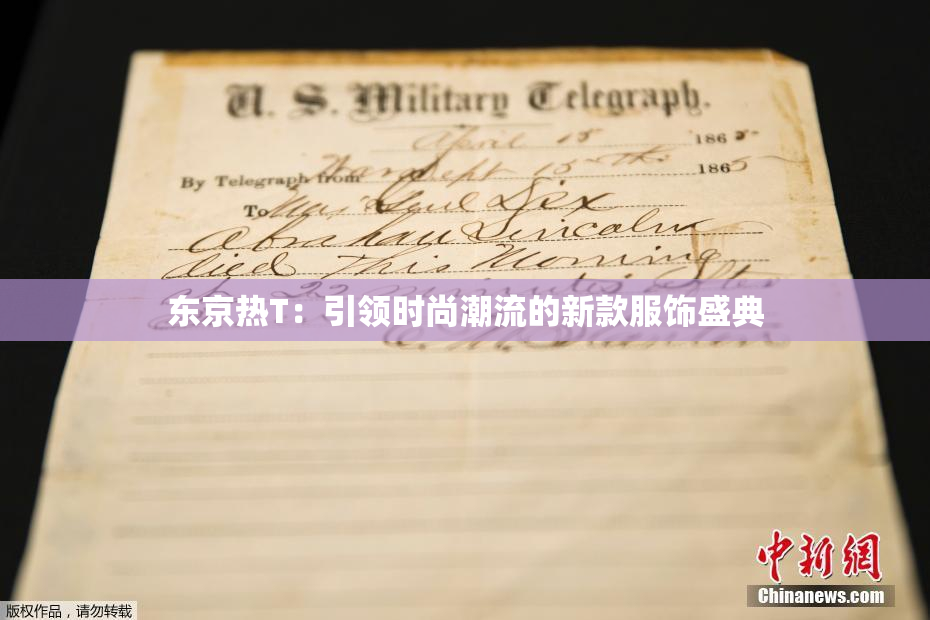 U. S. Military Telegraph.
April 15 1865
By Telegraph from War Dept 15th 1865
To Maj Genl Dix
Abraham Lincoln
died This Morning
at 22 minutes after
东京热T：引领时尚潮流的新款服饰盛典
E. M. Stanton
中新网
Chinanews.com
版权作品，请勿转载